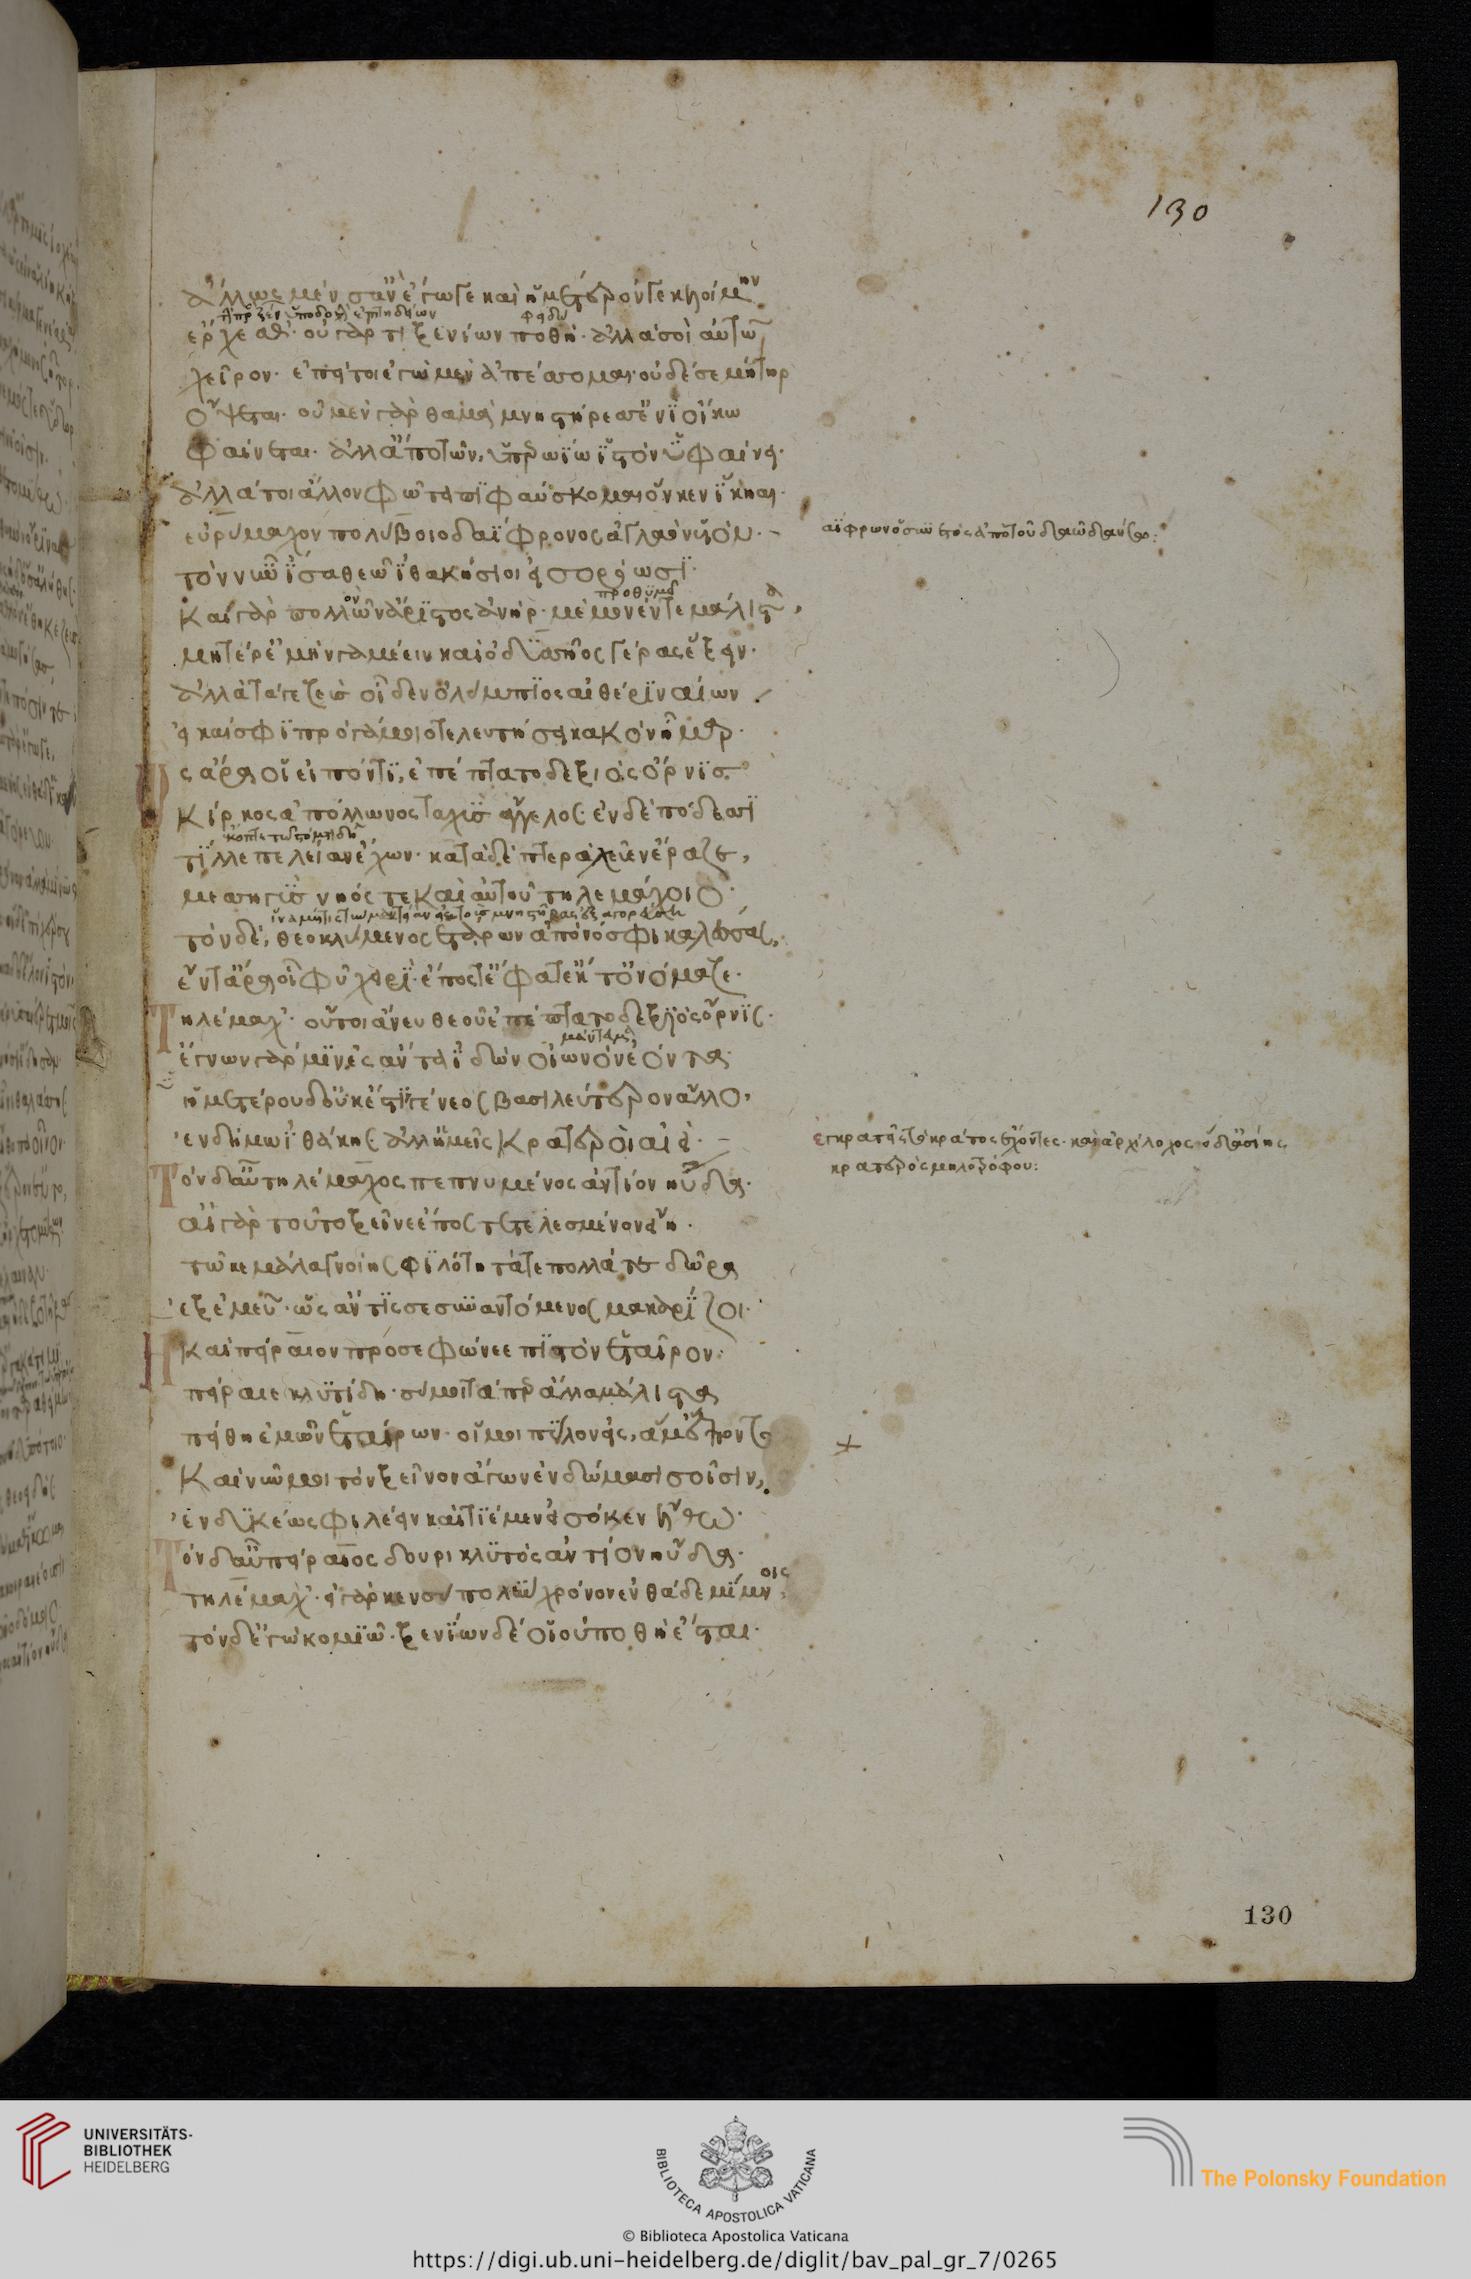 130
ἄλλως μέν σ' ἂν ἔγωγε καὶ ἡμέτερόν γε κελοίμην
φείδω
ἔρχεσθ'· οὐ γάρ τι ξενίων ποθή· ἀλλὰ σοὶ αὐτῶ
χεῖρον· ἐπεί τοι ἐγὼ μὲν ἀπέσσομαι· οὐδέ σε μήτηρ
ὄψεται· οὐ μὲν γὰρ θαμὰ μνηστήρεσσ' ἐνὶ οἴκω
φαίνεται· ἀλλ' ἀπὸ τῶν, ὑπερωΐω ἱστὸν ὑφαίνει·
ἀλλά τοι ἄλλον φῶτα πιφαύσκομαι ὅν κεν ἵκηαι·
εὐρύμαχον πολύβοιο δαΐφρονος ἀγλαὸν υἱόν·
τὸν νῦν ἶσα θεῶ ἰθακήσιοι εἰσορόωσι·
προθυμεῖ
καὶ γὰρ πολλὸν ἄριστος ἀνήρ· μέμονέν τε μάλιστα,
μητέρ' ἐμὴν γαμέειν καὶ ὀδυσσῆος γέρας ἕξειν·
ἀλλὰ τά γε ζεὺς οἶδεν ὀλύμπιος αἰθέρι ναίων.
εἰ καί σφι πρὸ γάμοιο τελευτήσει κακὸν ἦμαρ·
ὣς ἄρα οἱ εἰπόντι, ἐπέπτατο δεξιὸς ὄρνις
κίρκος ἀπόλλωνος ταχὺς ἄγγελος· ἐν δὲ πόδεσσι
τίλλε πέλειαν ἔχων· κατὰ δὲ πτερὰ χεῦεν ἔραζε,
μεσηγὺς νηός τε καὶ αὐτοῦ τηλεμάχοιο·
τὸν δὲ, θεοκλύμενος ἑτάρων ἀπονόσφι καλέσσας,
ἔν τ' ἄρα οἱ φῦ χειρὶ· ἔπος τ' ἔφατ' ἔκ τ' ὀνόμαζε·
Τηλέμαχ'· οὔ τοι ἄνευ θεοῦ ἐπέπτατο δεξιὸς ὄρνις·
ἔγνων γάρ μιν ἐσάντα ἰδὼν οἰωνὸν ἐόντα·
ὑμετέρου δ' οὐκ ἔστι γένεος βασιλεύτερον ἄλλο,
ἐν δήμω ἰθάκης ἀλλ' ὑμεῖς κρατεροὶ αἰεί·
ἐγκρατεῖς τὸ κράτος ἔχοντες· καὶ ἀρχίλοχος· ὁ δ' ἀσίης
κρατερὸς μηλοτρόφου:
Τὸν δ' αὖ τηλέμαχος πεπνυμένος ἀντίον ηὔδα·
αἲ γὰρ τοῦτο ξεῖνε ἔπος τετελεσμένον εἴη·
τῶ κε μάλα γνοίης φιλότητά τε πολλά τε δῶρα
ἐξ ἐμεῦ· ὡς ἄν τίς σε συναντόμενος μακαρίζοι·
Ἦ καὶ πείραιον προσεφώνεε πιστὸν ἑταῖρον·
πείραιε κλυτίδη· σύ μοι τά περ ἄλλα μάλιστα
πείθη ἐμῶν ἑταίρων· οἵ μοι πύλον εἰς, ἅμ' ἕποντο
καὶ νῦν μοι τὸν ξεῖνον ἄγων ἐν δώμασι σοῖσιν,
ἐνδυκέως φιλέειν καὶ τιέμεν εἰσόκεν ἔλθω·
Τὸν δ' αὖ πείραιος δουρικλυτὸς ἀντίον ηὔδα·
τηλέμαχ'· εἰ γάρ κεν σὺ πολὺν χρόνον ἐνθάδε μίμνοις,
τόνδε τ' ἐγὼ κομιῶ· ξενίων δέ οἱ οὐ ποθὴ ἔσται·
130
UNIVERSITÄTS-
BIBLIOTHEK
HEIDELBERG
BIBLIOTECA APOSTOLICA VATICANA
© Biblioteca Apostolica Vaticana
The Polonsky Foundation
https://digi.ub.uni-heidelberg.de/diglit/bav_pal_gr_7/0265